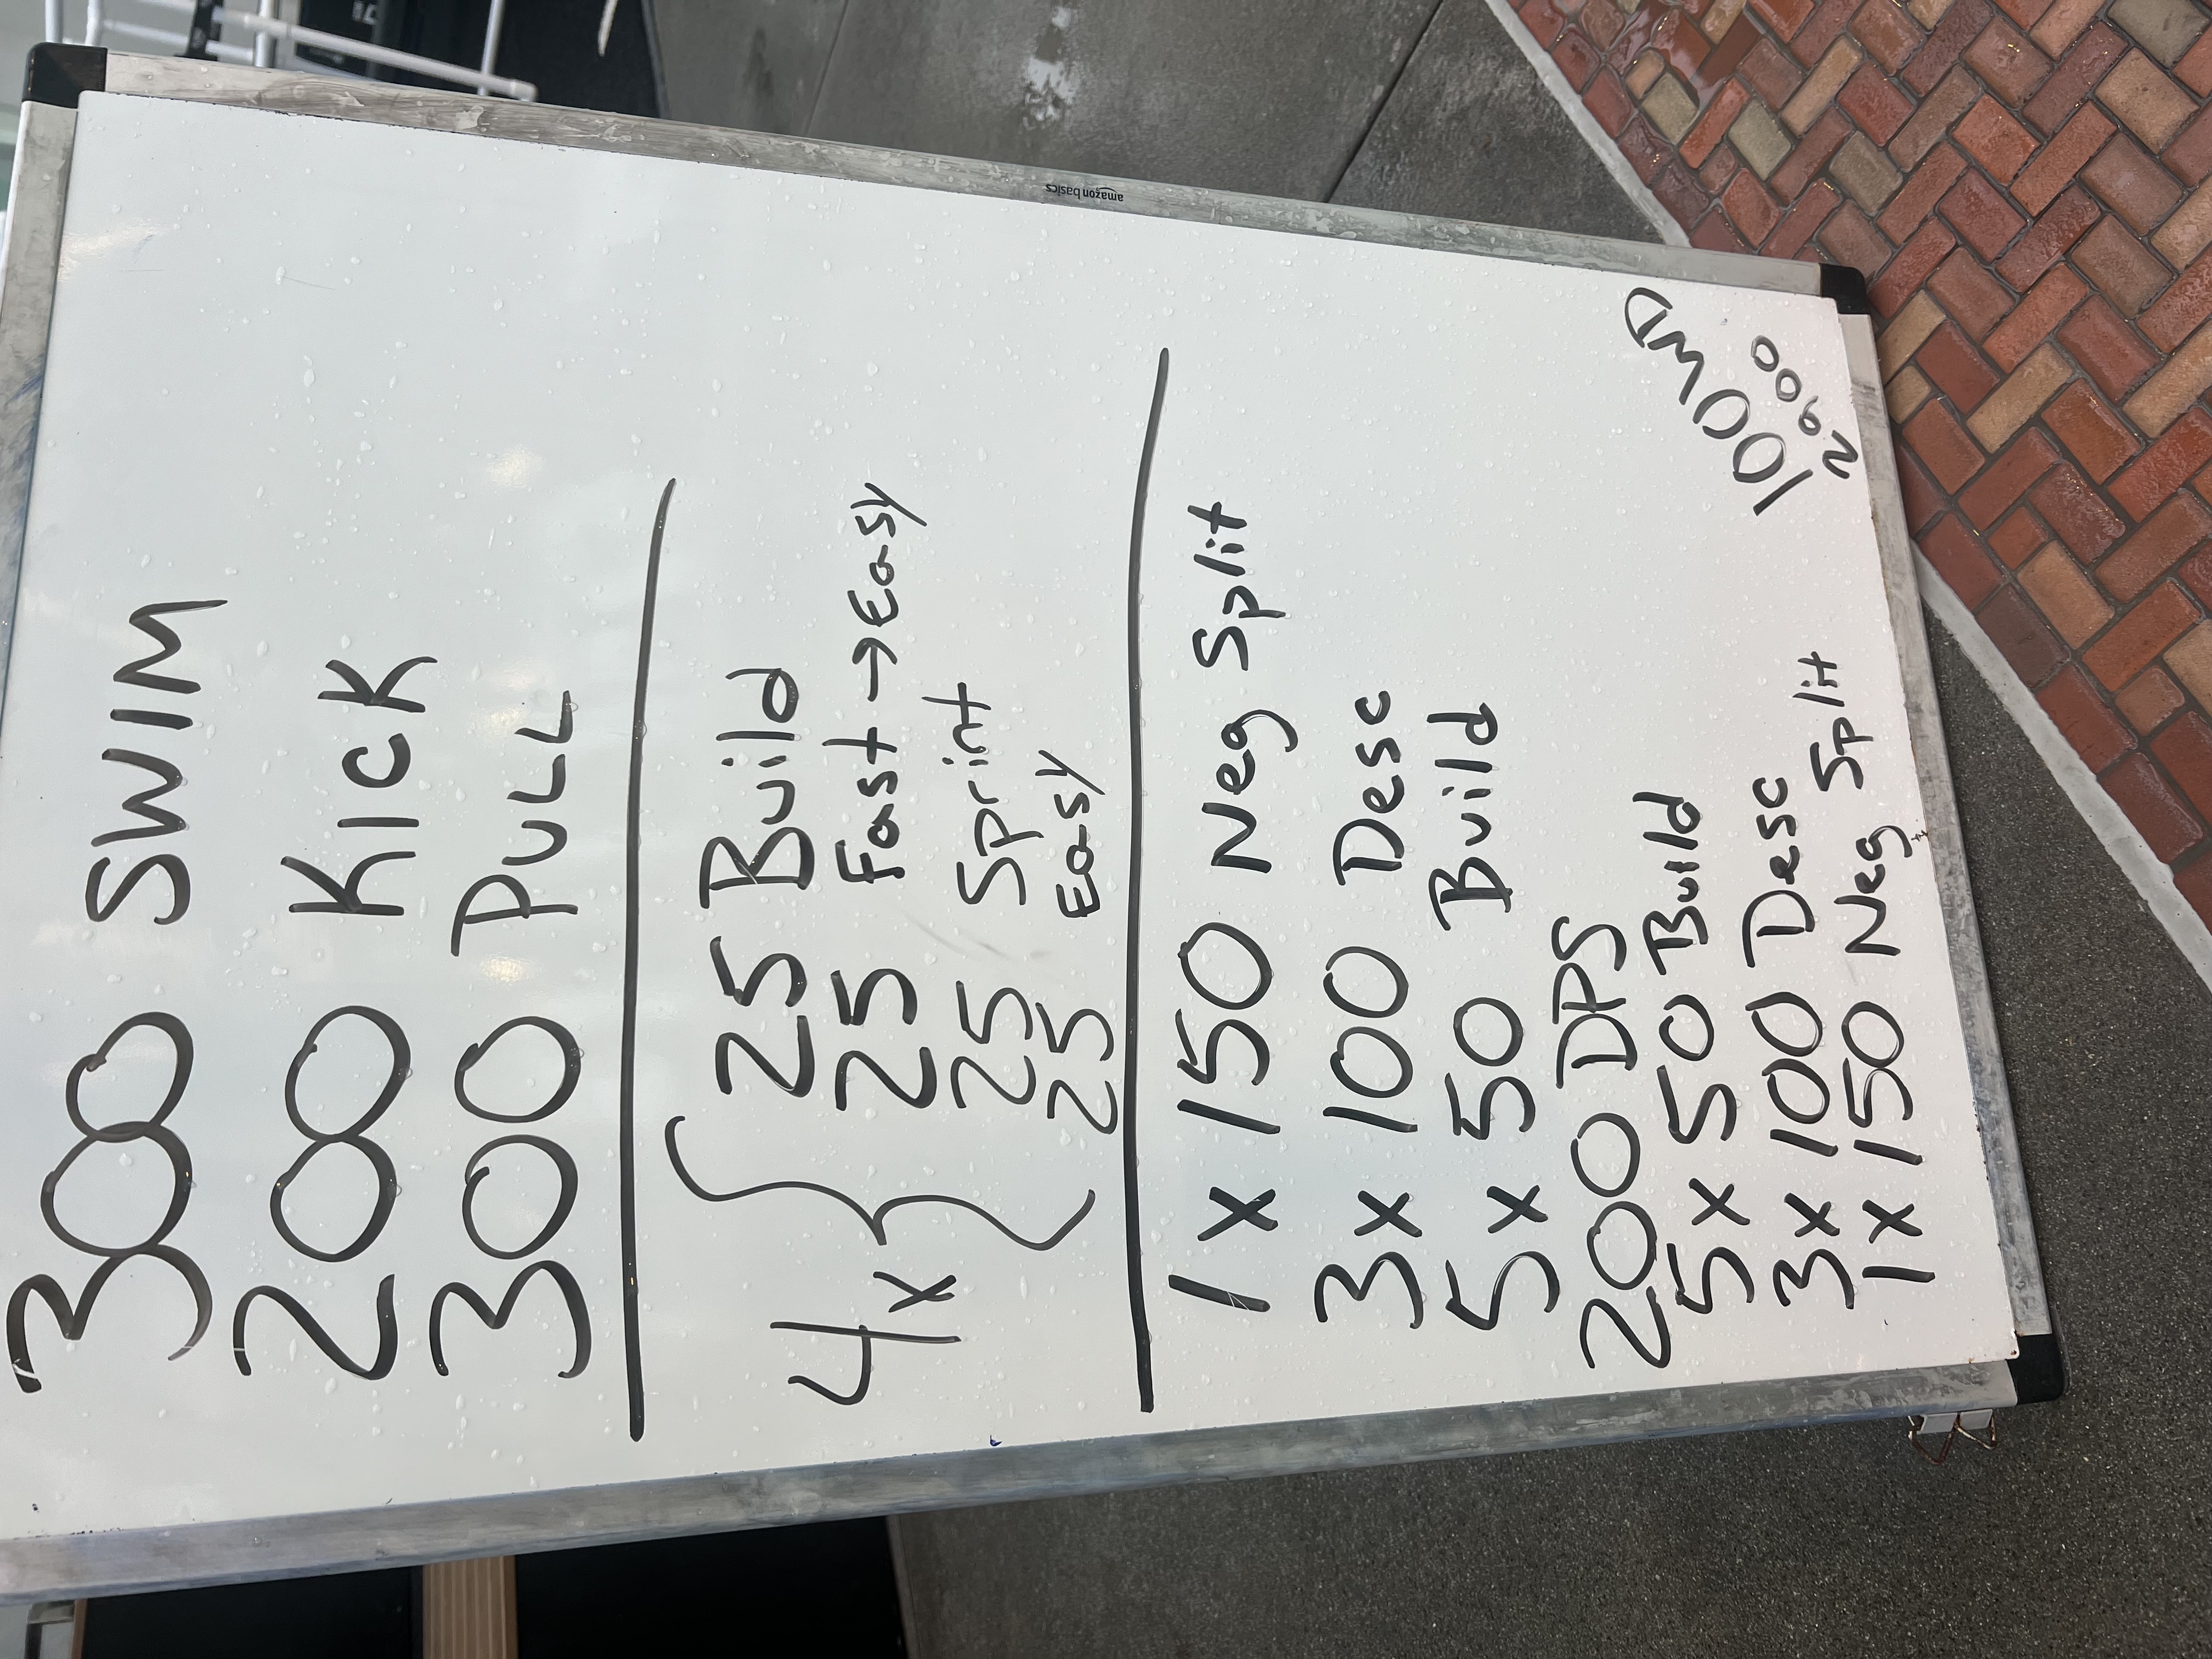 300 SWIM
200 KICK
300 PULL
4x { 25 Build
25 Fast → Easy
25 Sprint
25 Easy
1 x 150 Neg Split
3 x 100 Desc
5 x 50 Build
200 DPS
5 x 50 Build
3 x 100 Desc
1 x 150 Neg Split
100 WD
2900
amazon basics